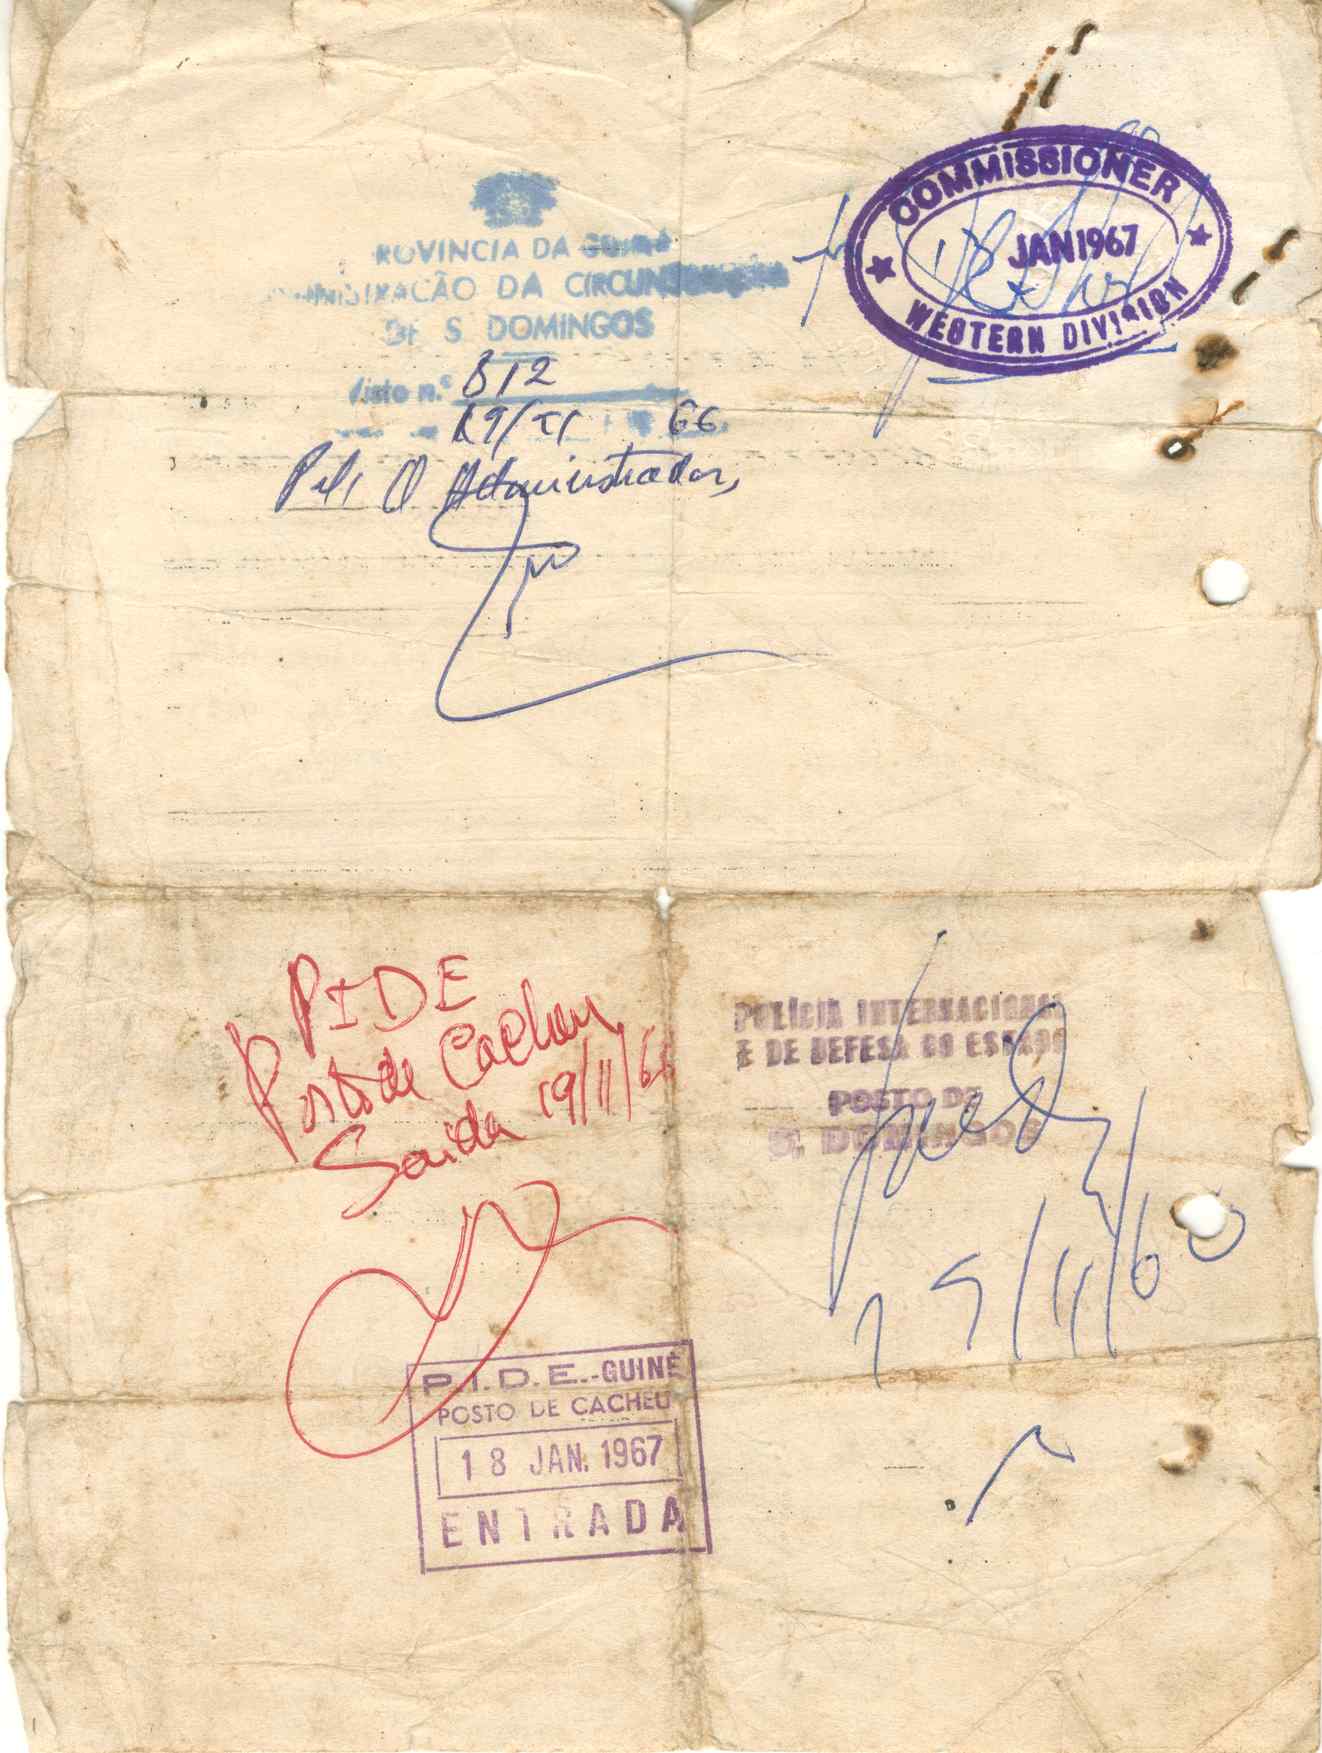 COMMISSIONER
JAN 1967
WESTERN DIVISION
PROVINCIA DA GUINÉ
ADMINISTRAÇÃO DA CIRCUNSCRIÇÃO
DE S. DOMINGOS
Visto n.º 812
19/11 66
O Administrador,
PIDE
Posto de Cacheu
Saida 19/11/66
POLÍCIA INTERNACIONAL
E DE DEFESA DO ESTADO
POSTO DE
S. DOMINGOS
19/11/66
P.I.D.E.-GUINÉ
POSTO DE CACHEU
18 JAN. 1967
ENTRADA